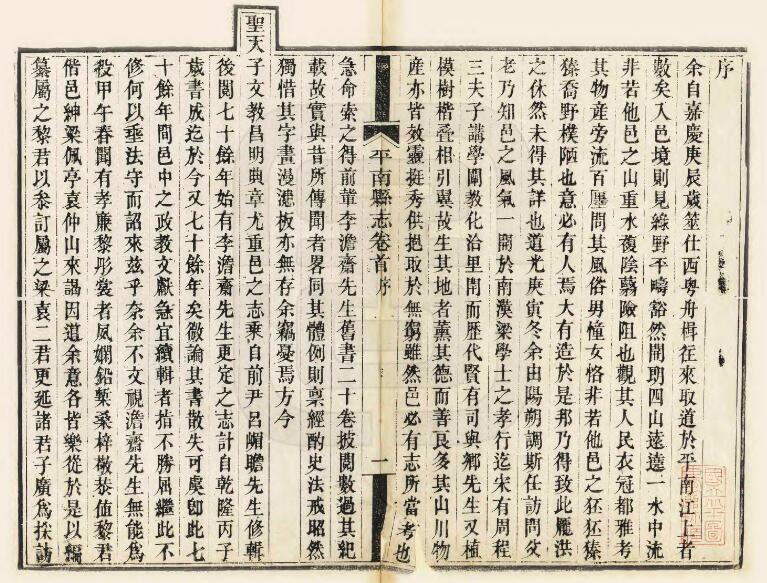 序
余自嘉慶庚辰歲筮仕西粵舟楫往來取道於平南江上者
數矣入邑境則見綠野平疇豁然開朗四山遠遶一水中流
非若他邑之山重水複陰翳險阻也觀其人民衣冠都雅考
其物產旁流百廛問其風俗男憧女恪非若他邑之狉狉獉
獉喬野樸陋也意必有人焉大有造於是邦乃得致此龐洪
之休然未得其詳也道光庚寅冬余由陽朔調斯任訪問父
老乃知邑之風氣一開於南漢梁學士之孝行迄宋有周程
三夫子講學闡教化治里閈而歷代賢有司與鄉先生又植
模樹楷疊相引翼故生其地者薰其德而善良多其山川物
產亦皆效靈挺秀供挹取於無窮雖然邑必有志所當考也
平南縣志卷首 序 一
急命索之得前輩李澹齋先生舊書二十卷披閱數過其紀
載故實與昔所傳聞者畧同其體例則稟經酌史法戒昭然
獨惜其字畫漫漶板亦無存余竊憂焉方今
聖天子文教昌明典章尤重邑之志乘自前尹呂頫瞻先生修輯
後閱七十餘年始有李澹齋先生更定之志計自乾隆丙子
歲書成迄於今又七十餘年矣微論其書散失可虞卽此七
十餘年間邑中之政教文獻急宜續輯者指不勝屈繼此不
修何以垂法守而詔來茲乎奈余不文視澹齋先生無能爲
役甲午春聞有孝廉黎彤裳者夙嫻鉛槧桑梓敬恭値黎君
偕邑紳梁佩亭袁仲山來謁因道余意各皆樂從於是以編
纂屬之黎君以叅訂屬之梁袁二君更延諸君子廣爲採訪